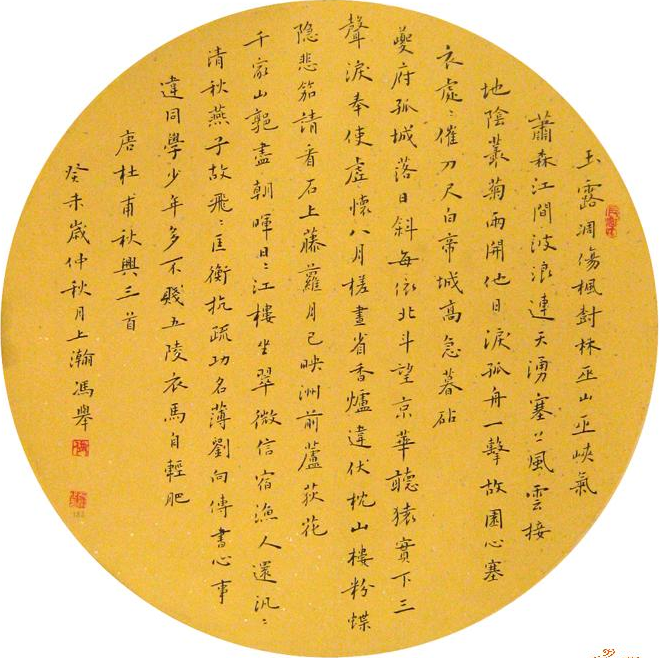 玉露凋傷楓樹林巫山巫峽氣
蕭森江間波浪連天湧塞上風雲接
地陰叢菊兩開他日淚孤舟一繫故園心塞
衣處〻催刀尺白帝城高急暮砧
夔府孤城落日斜每依北斗望京華聽猿實下三
聲淚奉使虛懷八月槎畫省香爐違伏枕山樓粉蝶
隐悲笳請看石上藤蘿月已映洲前蘆荻花
千家山郭盡朝暉日〻江樓坐翠微信宿漁人還汎〻
清秋燕子故飛〻匡衡抗疏功名薄劉向傳書心事
違同學少年多不賤五陵衣馬自輕肥
唐杜甫秋興三首
癸未歲仲秋月上瀚馮舉